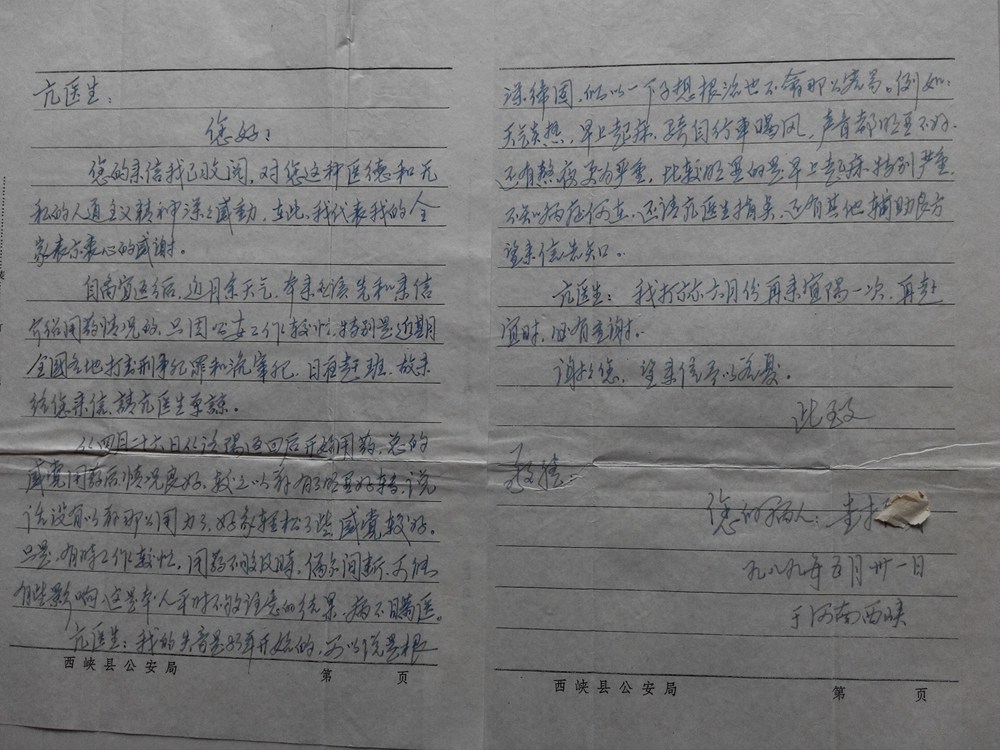 亢医生：
您好！
您的来信我已收阅，对您这种医德和无
私的人道主义精神深深感动，在此，我代表我的全
家表示衷心的感谢。
自离宜返后，近月余天气，本来应该先和来信
介绍用药情况的，只因公安工作较忙，特别是近期
全国各地打击刑事犯罪和流窜犯，日夜赶班，故未
给您来信，請亢医生原諒。
从四月二十六日从洛陽返回后开始用药，总的
感觉用药后情况良好，较之以前有了明显好转，说
话没有以前那么用力了，好象轻松了些，感觉较好。
只是，有时工作较忙，用药不够及時，偶尔间断，可能
有些影响，这是本人平时不够注意的结果，病不瞞医。
亢医生：我的失音是 年开始的，可以说是根
西峡县公安局 第 页
深蒂固，所以一下子想根治也不会那么容易。例如：
天气炎热，早上起床，骑自行車喝风，声音都明显不好，
还有熬夜更为严重，比较明显的是早上起床特别严重，
不知病症何在，还请亢医生指点，还有其他辅助良方
望来信告知。
亢医生：我打算六月份再来宜陽一次，再赴
宜时，必有重谢。
谢谢您，望来信予以答复。
此致
敬禮！
您的病人：李
九八九年五月卅一日
于河南西峡
西峡县公安局 第 页